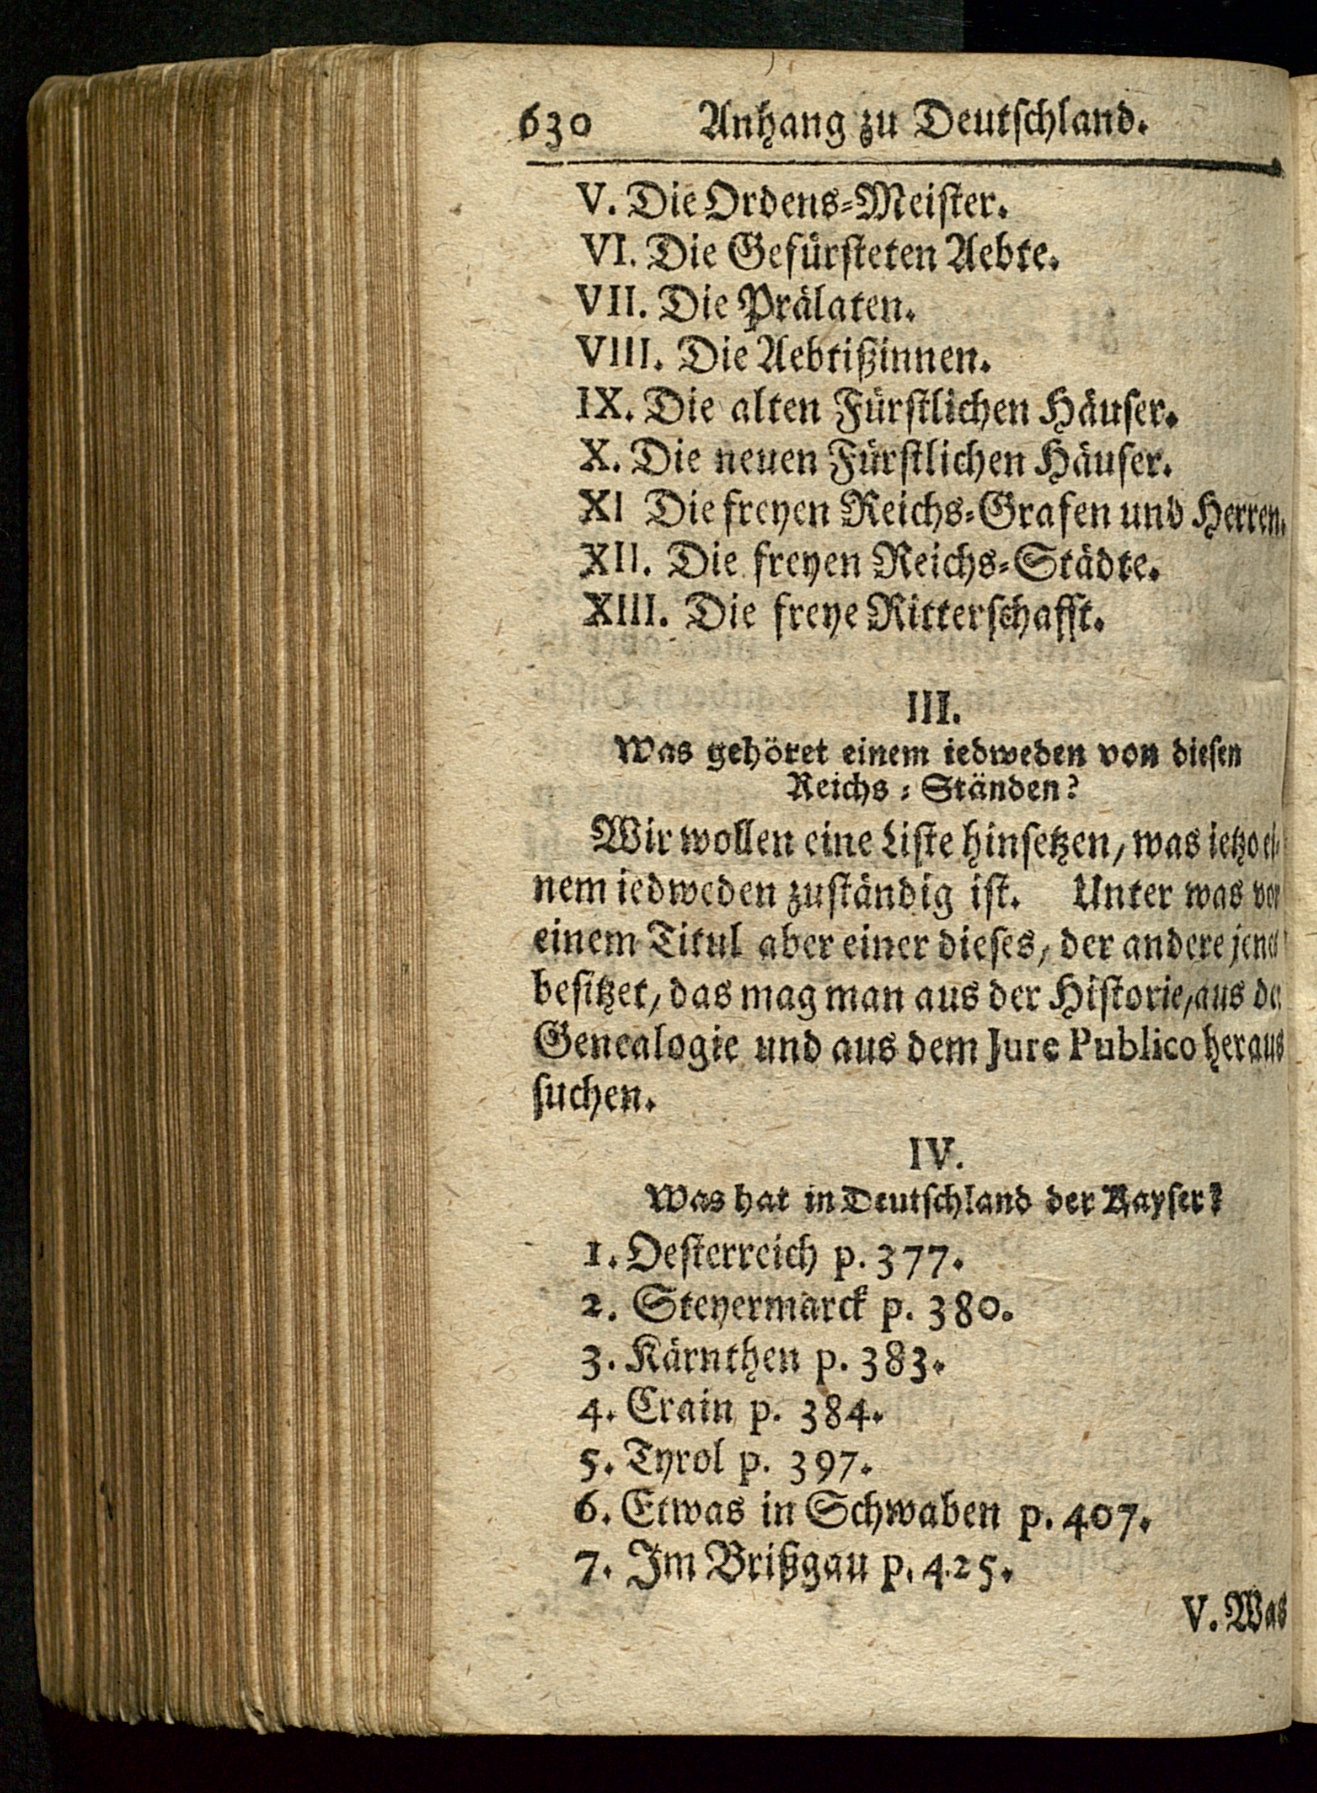 630 Anhang zu Deutschland.
V. Die Ordens-Meister.
VI. Die Gefürsteten Aebte.
VII. Die Prälaten.
VIII. Die Aebtißinnen.
IX. Die alten Fürstlichen Häuser.
X. Die neuen Fürstlichen Häuser.
XI Die freyen Reichs-Grafen und Herren.
XII. Die freyen Reichs-Städte.
XIII. Die freye Ritterschafft.
III.
Was gehöret einem iedweden von diesen
Reichs-Ständen?
Wir wollen eine Liste hinsetzen, was ietzo ei-
nem iedweden zuständig ist. Unter was vor
einem Titul aber einer dieses, der andere jenes
besitzet, das mag man aus der Historie, aus der
Genealogie und aus dem Jure Publico heraus
suchen.
IV.
Was hat in Deutschland der Kayser?
1. Oesterreich p. 377.
2. Steyermarck p. 380.
3. Kärnthen p. 383.
4. Crain p. 384.
5. Tyrol p. 397.
6. Etwas in Schwaben p. 407.
7. Im Brißgau p. 425.
V. Was